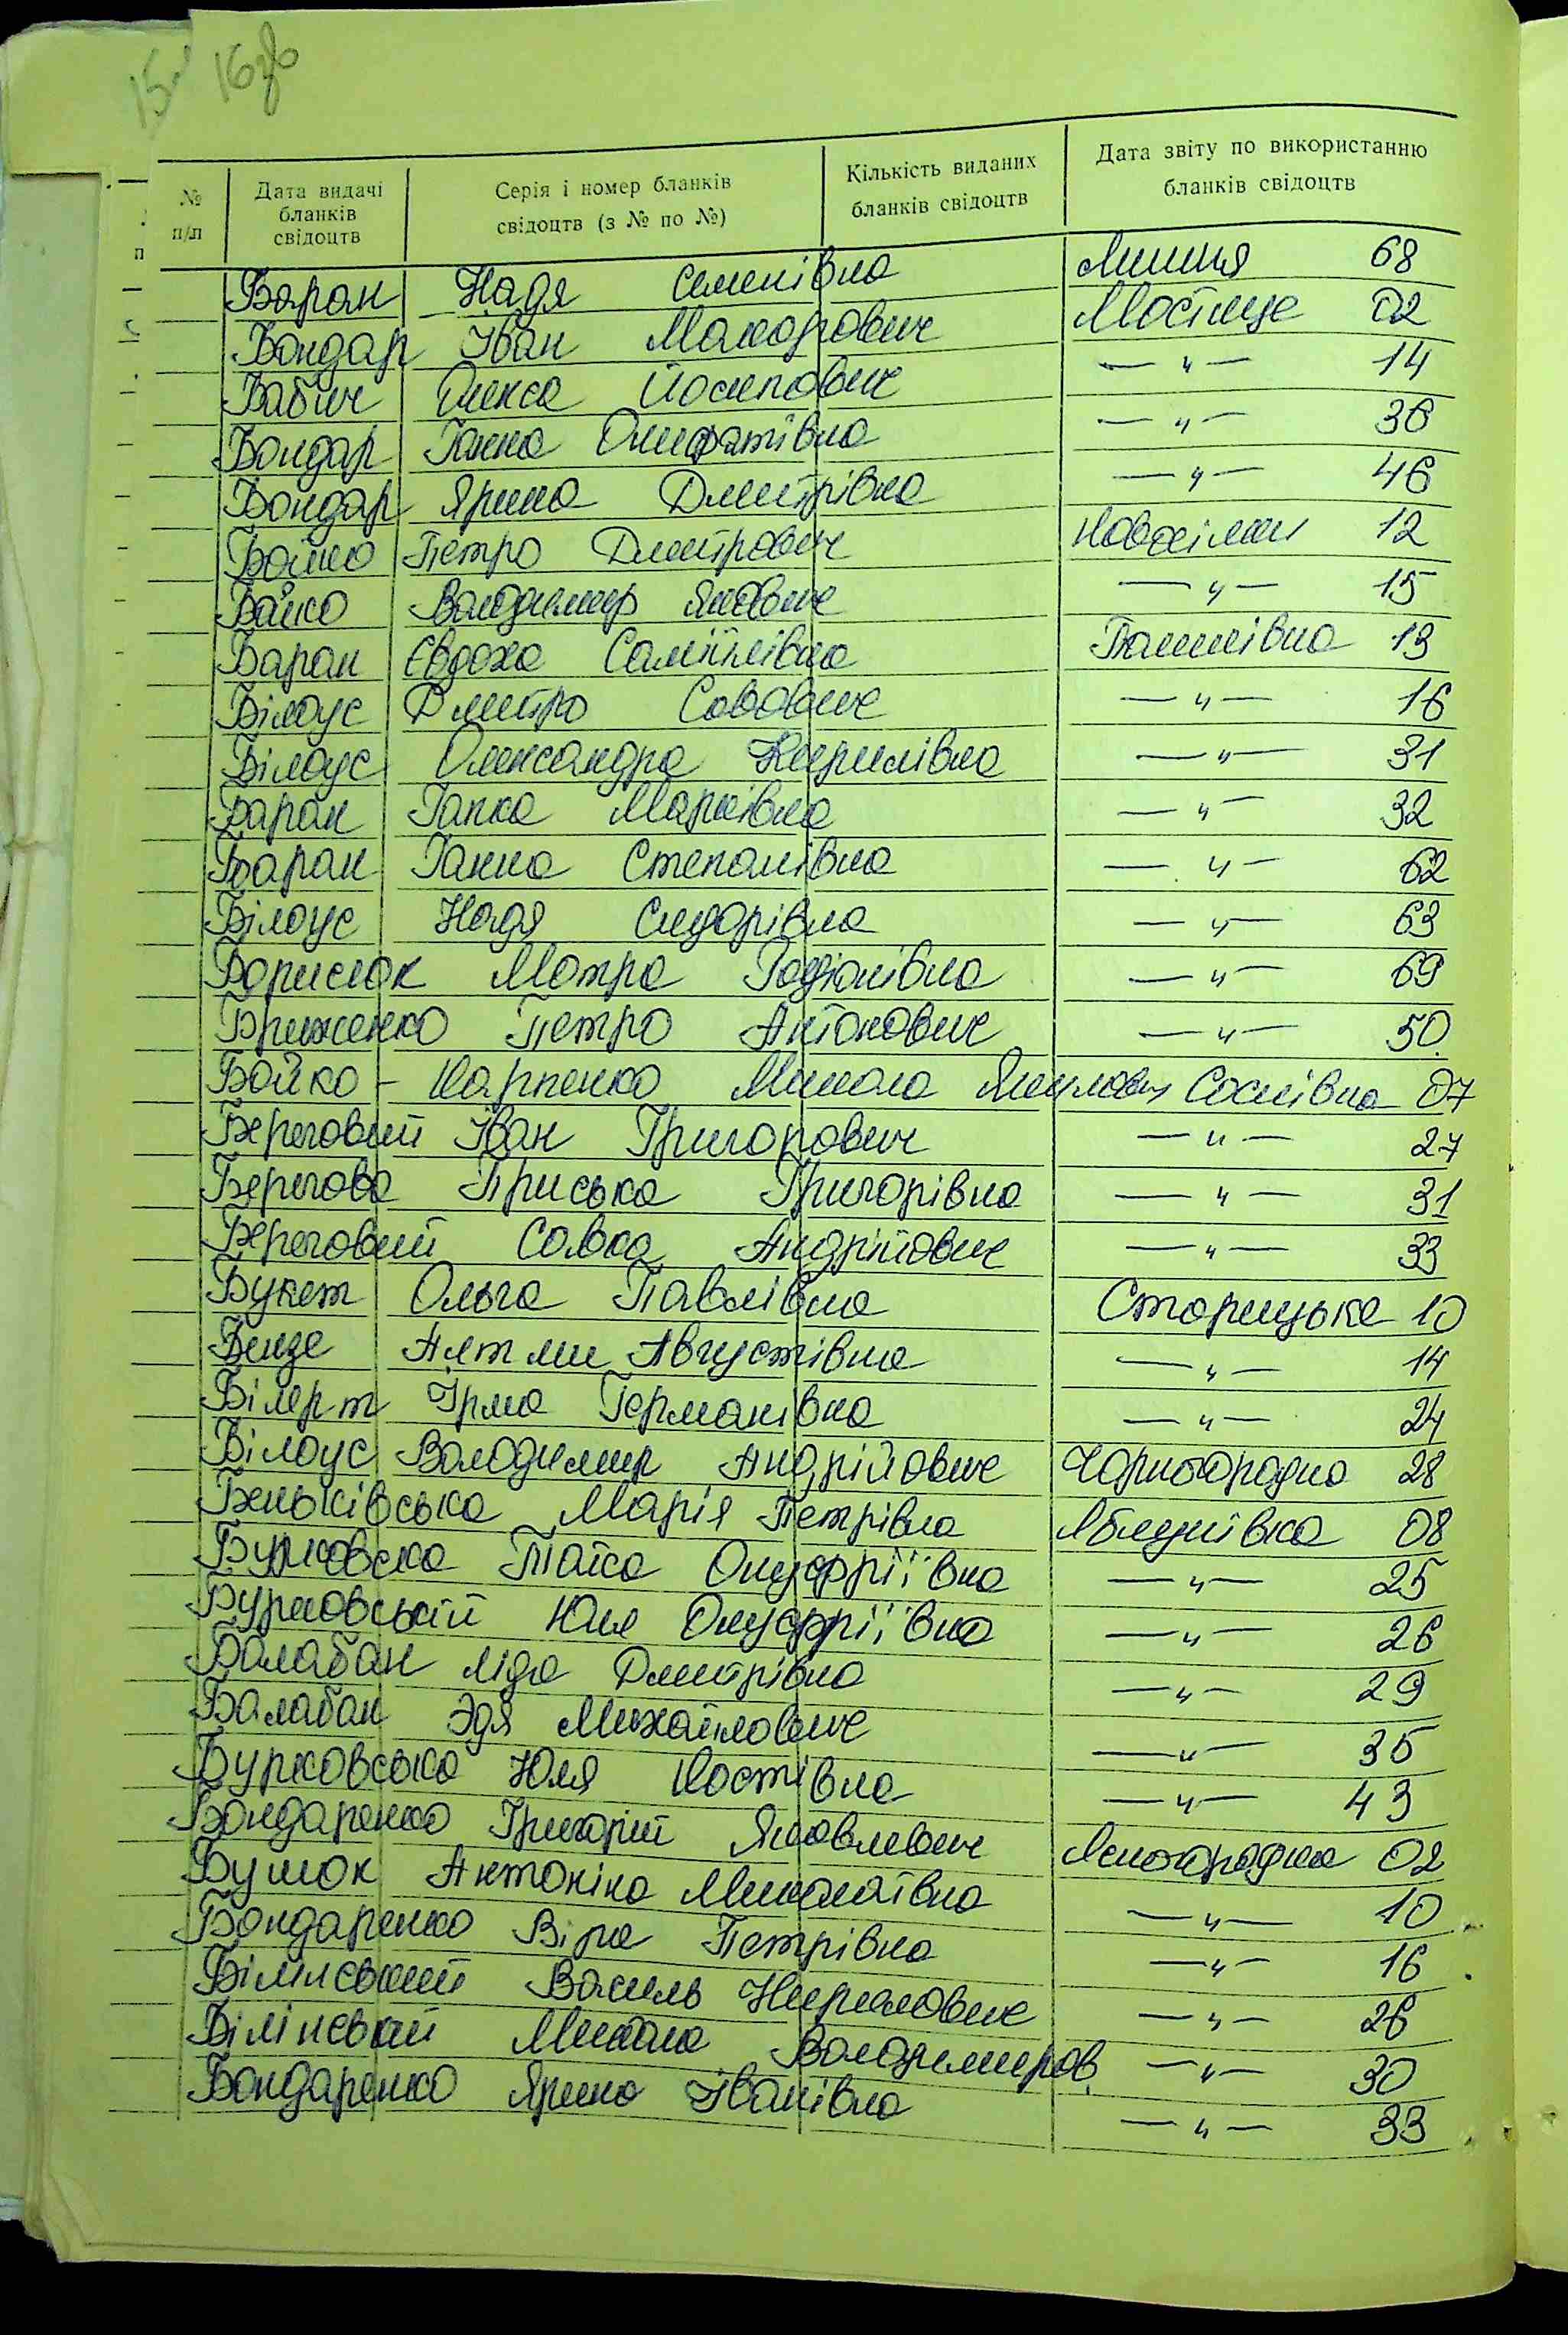 15 16зв
№ п/п
Дата видачі бланків свідоцтв
Серія і номер бланків свідоцтв (з № по №)
Кількість виданих бланків свідоцтв
Дата звіту по використанню бланків свідоцтв
Баран Надя Семенівна Линиця 68
Бондар Іван Макарович Мостище 02
Бабич Олекса Йосипович —„— 14
Бондар Ганна Олифатівна —„— 36
Бондар Ярина Дмитрівна —„— 46
Бойко Петро Дмитрович Новосілки 12
Бойко Володимир Якович —„— 15
Баран Євдоха Самійлівна Пашківка 13
Білоус Дмитро Савович —„— 16
Білоус Олександра Кирилівна —„— 31
Баран Гапка Марківна —„— 32
Баран Ганна Степанівна —„— 62
Білоус Надя Сидорівна —„— 63
Борисюк Мотра Родіонівна —„— 69
Бриженко Петро Антонович —„— 50
Бойко - Карпенко Микола Соснівка 07
Береговий Іван Григорович —„— 27
Берегова Приська Григорівна —„— 31
Береговий Савка Андрійович —„— 33
Букет Ольга Павлівна Сторицька 10
Бенде Августівна —„— 14
Білерт Ірма Германівна —„— 24
Білоус Володимир Андрійович Чорногородка 28
Беньківська Марія Петрівна Яблунівка 08
Бурковска Таїса Онуфріївна —„— 25
Бурковський Юля Онуфріївна —„— 26
Балабан Ліда Дмитрівна —„— 29
Балабан Эдя Михайлович —„— 35
Бурковська Юля Костівна —„— 43
Бондаренко Григорій Яковлевич Ясногородка 02
Антоніна Миколаївна —„— 10
Бондаренко Віра Петрівна —„— 16
Василь —„— 26
Микола Володимиров. —„— 30
Бондаренко Ярина Іванівна —„— 33